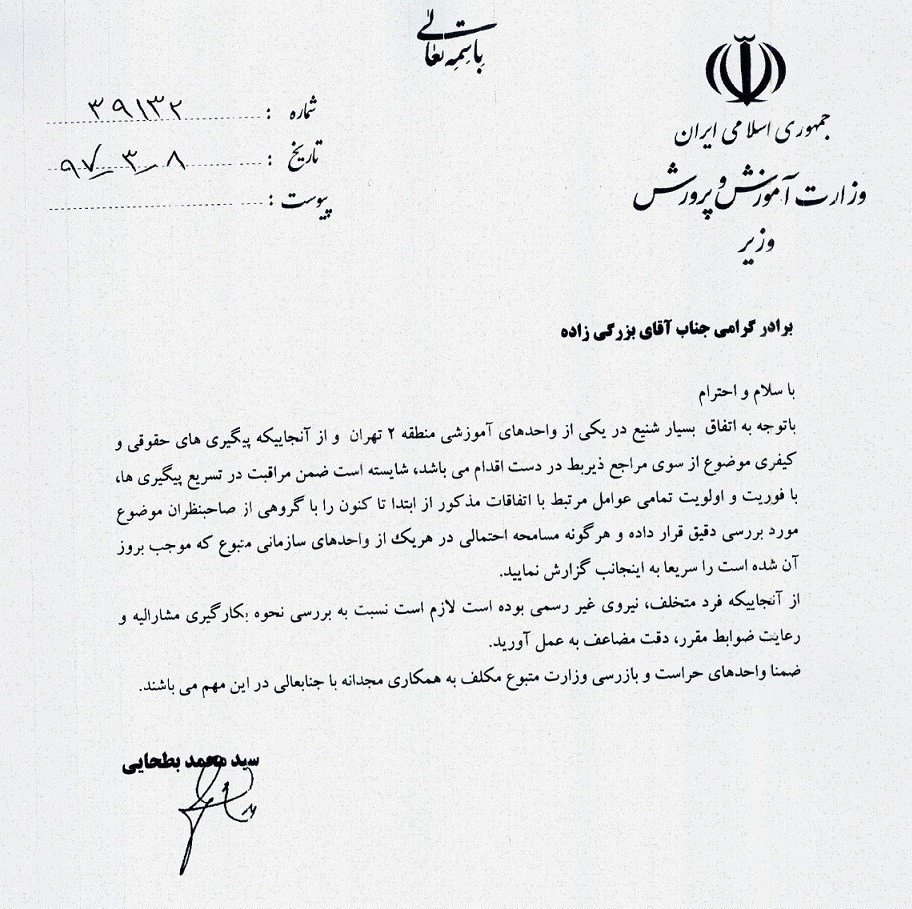 باسمه تعالی
جمهوری اسلامی ایران
وزارت آموزش و پرورش
وزیر
شماره : ۳۹۱۳۲
تاریخ : ۹۷_۳_۸
پیوست :
برادر گرامی جناب آقای بزرگی زاده
با سلام و احترام
باتوجه به اتفاق بسیار شنیع در یکی از واحدهای آموزشی منطقه ۲ تهران و از آنجاییکه پیگیری های حقوقی و
کیفری موضوع از سوی مراجع ذیربط در دست اقدام می باشد، شایسته است ضمن مراقبت در تسریع پیگیری ها،
با فوریت و اولویت تمامی عوامل مرتبط با اتفاقات مذکور از ابتدا تا کنون را با گروهی از صاحبنظران موضوع
مورد بررسی دقیق قرار داده و هرگونه مسامحه احتمالی در هریک از واحدهای سازمانی متبوع که موجب بروز
آن شده است را سریعا به اینجانب گزارش نمایید.
از آنجاییکه فرد متخلف، نیروی غیر رسمی بوده است لازم است نسبت به بررسی نحوه بکارگیری مشارالیه و
رعایت ضوابط مقرر، دقت مضاعف به عمل آورید.
ضمنا واحدهای حراست و بازرسی وزارت متبوع مکلف به همکاری مجدانه با جنابعالی در این مهم می باشند.
سید محمد بطحایی